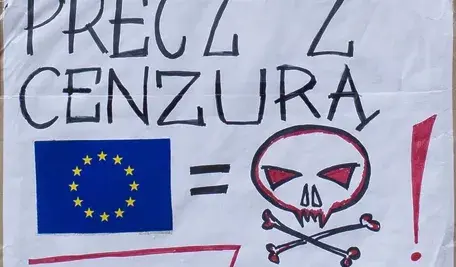 PRECZ Z
CENZURĄ
= !